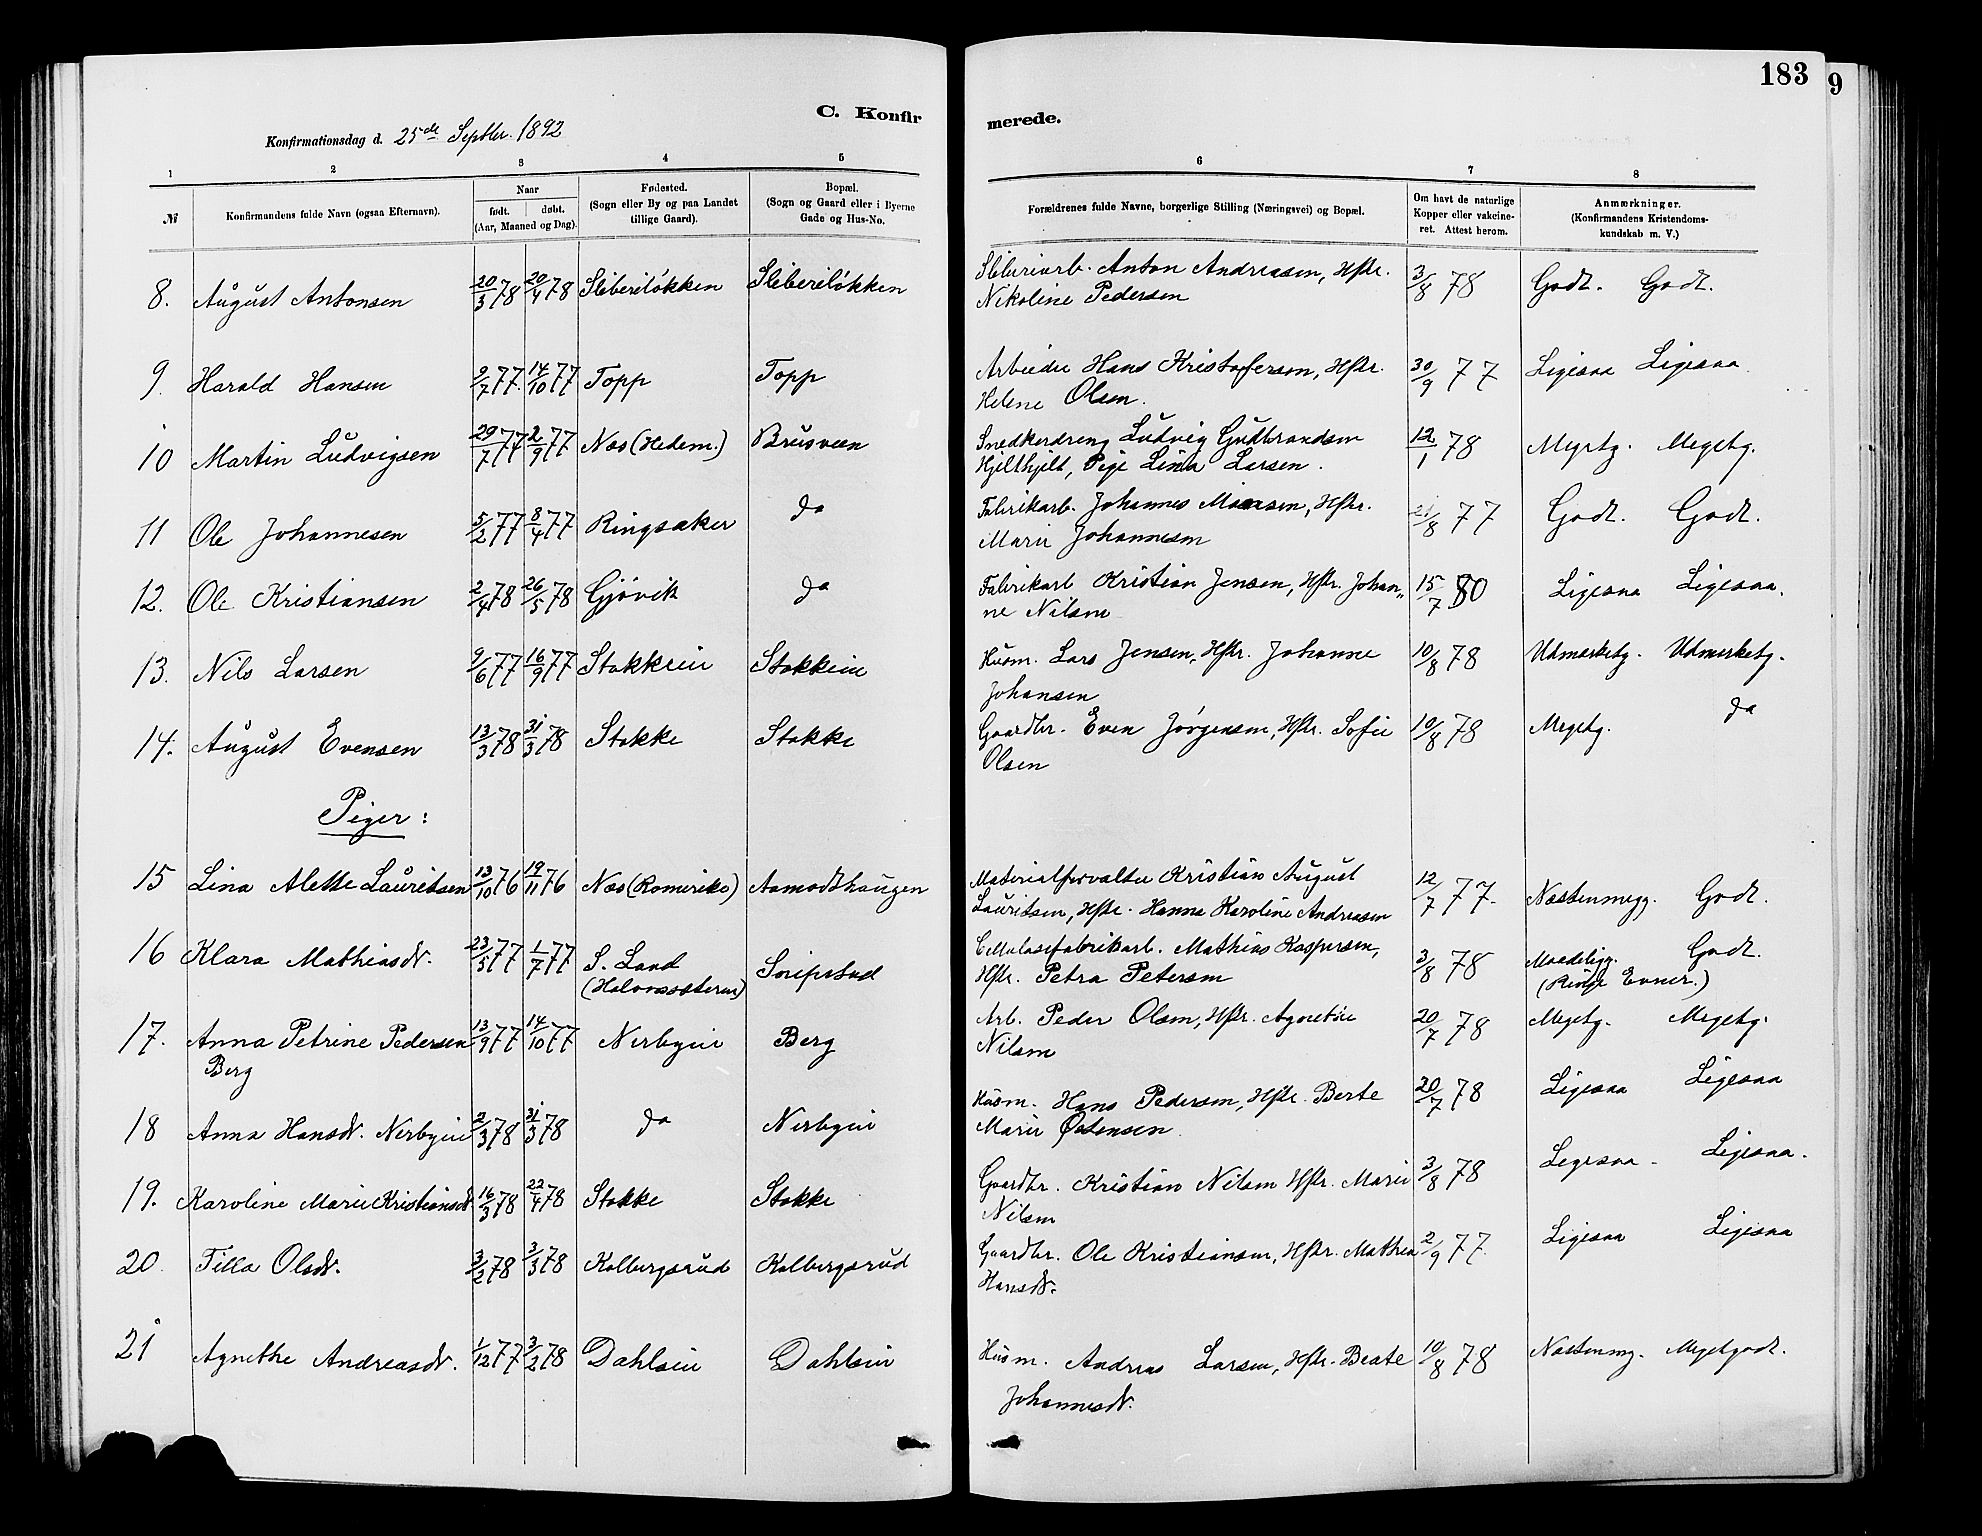 183
9
C. Konfir
merede.
Konfirmationsdag d. 25de Septbr. 1892
1 2 3 4 5 6 7 8
№
Konfirmandens fulde Navn (ogsaa Efternavn).
Naar
født. døbt.
(Aar, Maaned og Dag).
Fødested.
(Sogn eller By og paa Landet
tillige Gaard).
Bopæl.
(Sogn og Gaard eller i Byerne
Gade og Hus-No.
Forældrenes fulde Navne, borgerlige Stilling (Næringsvei) og Bopæl.
Om havt de naturlige
Kopper eller vakcine-
ret. Attest herom.
Anmærkninger.
(Konfirmandens Kristendoms-
kundskab m. V.)
8. August Antonsen 20/3 78 20/4 78 Sliberiløkken Sliberiløkken Sliberiarb. Anton Andreasen, Hstr. 3/8 78 Godt. Godt.
Nikoline Pedersen
9. Harald Hansen 2/7 77 14/10 77 Topp Topp Arbeider Hans Kristofersen, Hstr. 30/9 77 Ligesaa Ligesaa
Helene Olsen.
10 Martin Ludvigsen 29/7 77 2/9 77 Næs (Hedem.) Brusveen Snedkerdreng Ludvig Gudbrandsen 12/1 78 Megetg. Megetg.
Pige Lina Larsen.
11 Ole Johannesen 5/2 77 8/4 77 Ringsaker do Fabrikarb. Johannes Hstr. /8 77 Godt. Godt.
Marie Johannesen
12. Ole Kristiansen 2/4 78 26/5 78 Gjøvik do Fabrikarb Kristian Jensen, Hstr. Johan„ 15/7 80 Ligesaa Ligesaa.
ne Nilsen
13. Nils Larsen 9/6 77 16/9 77 Stokkeeie Stokkeeie Husm. Lars Jensen, Hstr. Johanne 10/8 78 Udmærketg. Udmerketg.
Johansen
14. August Evensen 13/3 78 31/3 78 Stokke Stokke Gaardbr. Even Jørgensen, Hstr. Sofie 10/8 78 Megetg. do
Olsen
Piger:
15 Lina Alette Lauritsen 13/10 76 19/11 76 Næs (Romerike) Aamodthaugen Materialforvalter Kristian August 12/7 77. Næstenmegg. Godt.
Lauritsen, Hstr. Hanna Karoline Andreasen
16 Klara Mathiasdr. 23/5 77 1/7 77 S. Land Cellulosefabrikarb. Mathias Kaspersen, 3/8 78 Maadeligg. Godt.
Hstr. Petra Petersen (Ringe Evner.)
17. Anna Petrine Pedersen 13/9 77 14/10 77 Nerbyeie Berg Arb. Peder Olsen, Hstr. Agnethe 20/7 78 Megetg. Megetg.
Berg Nilsen
18 Anna Hansdr. Nerbyeie 2/3 78 31/3 78 do Nerbyeie Husm. Hans Pedersen, Hstr. Berte 20/7 78 Ligesaa Ligesaa
Marie Østensen
19. Karoline Marie Kristiansdr. 16/3 78 22/4 78 Stokke Stokke Gaardbr. Kristian Nilsen Hstr. Marie 3/8 78 Ligesaa. Ligesaa.
Nilsen
20. Tilla Olsdr. 3/2 78 3/3 78 Kolbergsrud Kolbergsrud Gaardbr. Ole Kristiansen, Hstr. Mathea 2/9 77. Ligesaa Ligesaa
Hansdr.
21 Agnethe Andreasdr. 1/12 77 3/2 78 Dahlseie Dahlseie Husm. Andreas Larsen, Hstr. Beate 10/8 78 Næstenmg. Megetgodt.
Johannesdr.